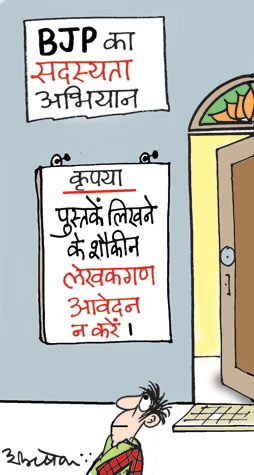 BJP का
सदस्यता
अभियान
कृपया
पुस्तकें लिखने
के शौकीन
लेखकगण
आवेदन
न करें।